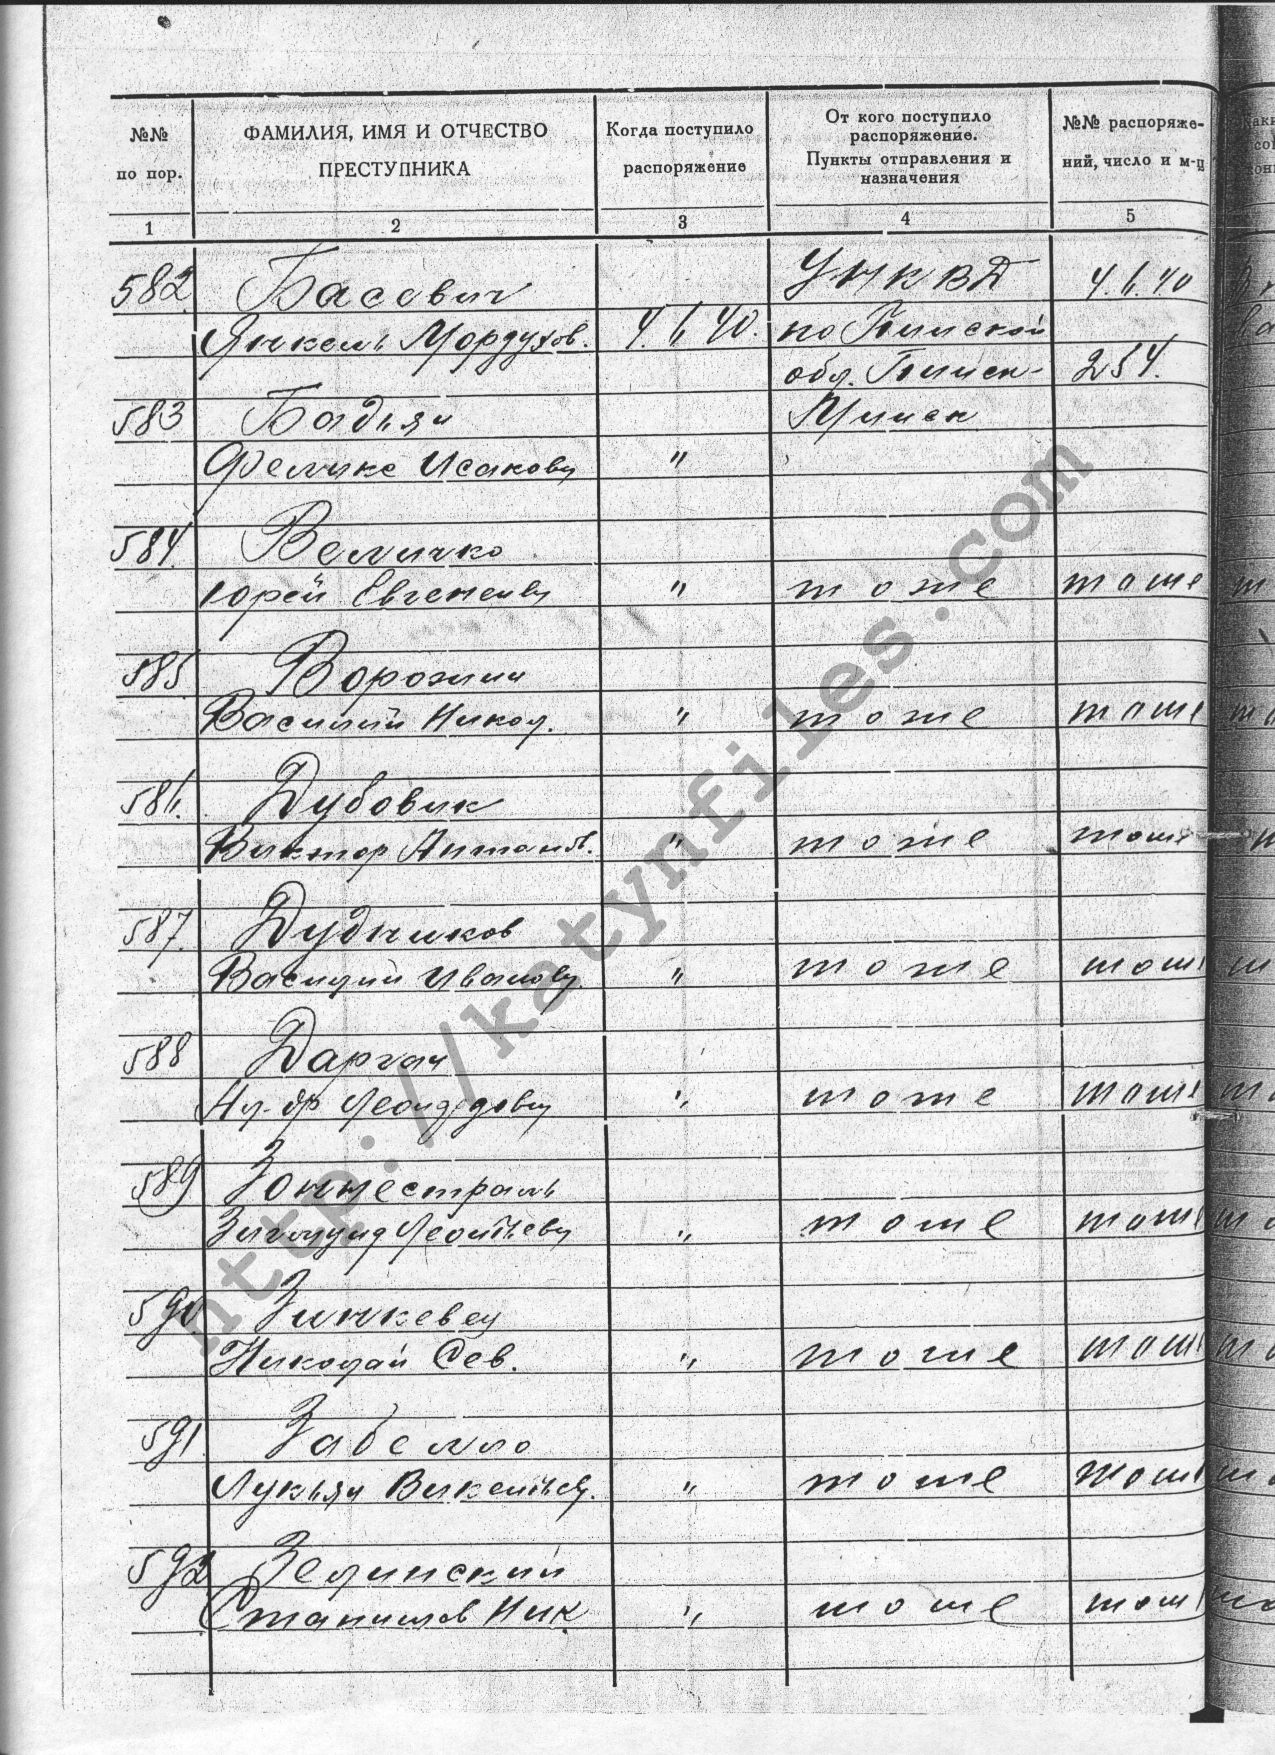 №№ по пор.
ФАМИЛИЯ, ИМЯ И ОТЧЕСТВО ПРЕСТУПНИКА
Когда поступило распоряжение
От кого поступило распоряжение. Пункты отправления и назначения
№№ распоряже- ний, число и м-ц
1 2 3 4 5
582 Басевич УНКВД 4.6.40
Янкель Мордухов. 4.6.40. по Пинской
обл. Пинск- 254.
583 Бадьян Минск
Феликс Исакови "
584. Величко
Юрей Евгениеви " тоже тоже
585. Ворожин
Василий Никол. " тоже тоже
586. Дубовик
Виктор Антонов. " тоже тоже
587. Дудников
Василий Иванови " тоже тоже
588 Даргач
Ал-др Леонидови " тоже тоже
589 Зоннестраль
Зигмунд Леонтьеви " тоже тоже
590 Зинкевец
Николай Сев. " тоже тоже
591 Забелло
Лукьян Викентьев. " тоже тоже
592 Зелинский
Станислов Ник. " тоже тоже
http://katynfiles.com